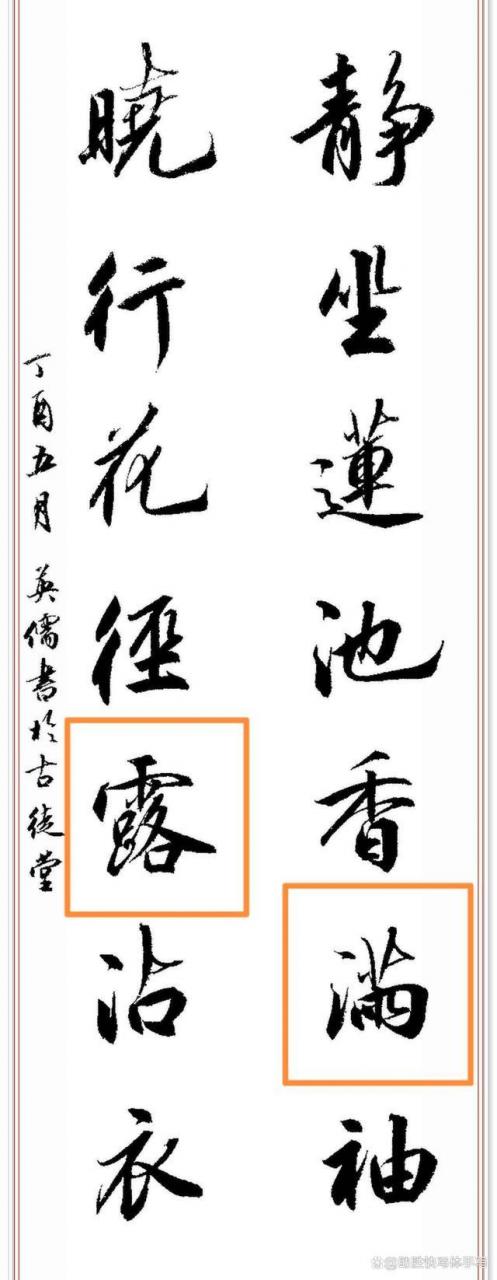 靜坐蓮池香滿袖
曉行花徑露沾衣
丁酉五月 英儒書於古徒堂